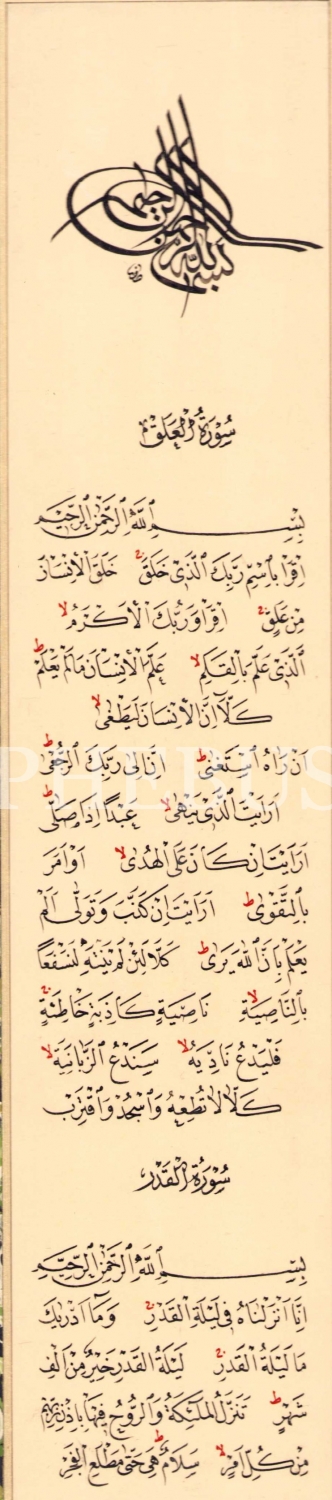 بسم الله الرحمن الرحيم
سُورَةُ الْعَلَقِ
بِسْمِ اللّٰهِ الرَّحْمٰنِ الرَّحِيمِ
اِقْرَأْ بِاسْمِ رَبِّكَ الَّذِي خَلَقَ خَلَقَ الْاِنْسَانَ
مِنْ عَلَقٍ اِقْرَأْ وَرَبُّكَ الْاَكْرَمُ
اَلَّذِي عَلَّمَ بِالْقَلَمِ عَلَّمَ الْاِنْسَانَ مَا لَمْ يَعْلَمْ
كَلَّا اِنَّ الْاِنْسَانَ لَيَطْغٰى
اَنْ رَاٰهُ اسْتَغْنٰى اِنَّ اِلٰى رَبِّكَ الرُّجْعٰى
اَرَاَيْتَ الَّذِي يَنْهٰى عَبْدًا اِذَا صَلّٰى
اَرَاَيْتَ اِنْ كَانَ عَلَى الْهُدٰى اَوْ اَمَرَ
بِالتَّقْوٰى اَرَاَيْتَ اِنْ كَذَّبَ وَتَوَلّٰى اَلَمْ
يَعْلَمْ بِاَنَّ اللّٰهَ يَرٰى كَلَّا لَئِنْ لَمْ يَنْتَهِ لَنَسْفَعًا
بِالنَّاصِيَةِ نَاصِيَةٍ كَاذِبَةٍ خَاطِئَةٍ
فَلْيَدْعُ نَادِيَهُ سَنَدْعُ الزَّبَانِيَةَ
كَلَّا لَا تُطِعْهُ وَاسْجُدْ وَاقْتَرِبْ
سُورَةُ الْقَدْرِ
بِسْمِ اللّٰهِ الرَّحْمٰنِ الرَّحِيمِ
اِنَّا اَنْزَلْنَاهُ فِي لَيْلَةِ الْقَدْرِ وَمَا اَدْرٰيكَ
مَا لَيْلَةُ الْقَدْرِ لَيْلَةُ الْقَدْرِ خَيْرٌ مِنْ اَلْفِ
شَهْرٍ تَنَزَّلُ الْمَلٰئِكَةُ وَالرُّوحُ فِيهَا بِاِذْنِ رَبِّهِمْ
مِنْ كُلِّ اَمْرٍ سَلَامٌ هِيَ حَتّٰى مَطْلَعِ الْفَجْرِ